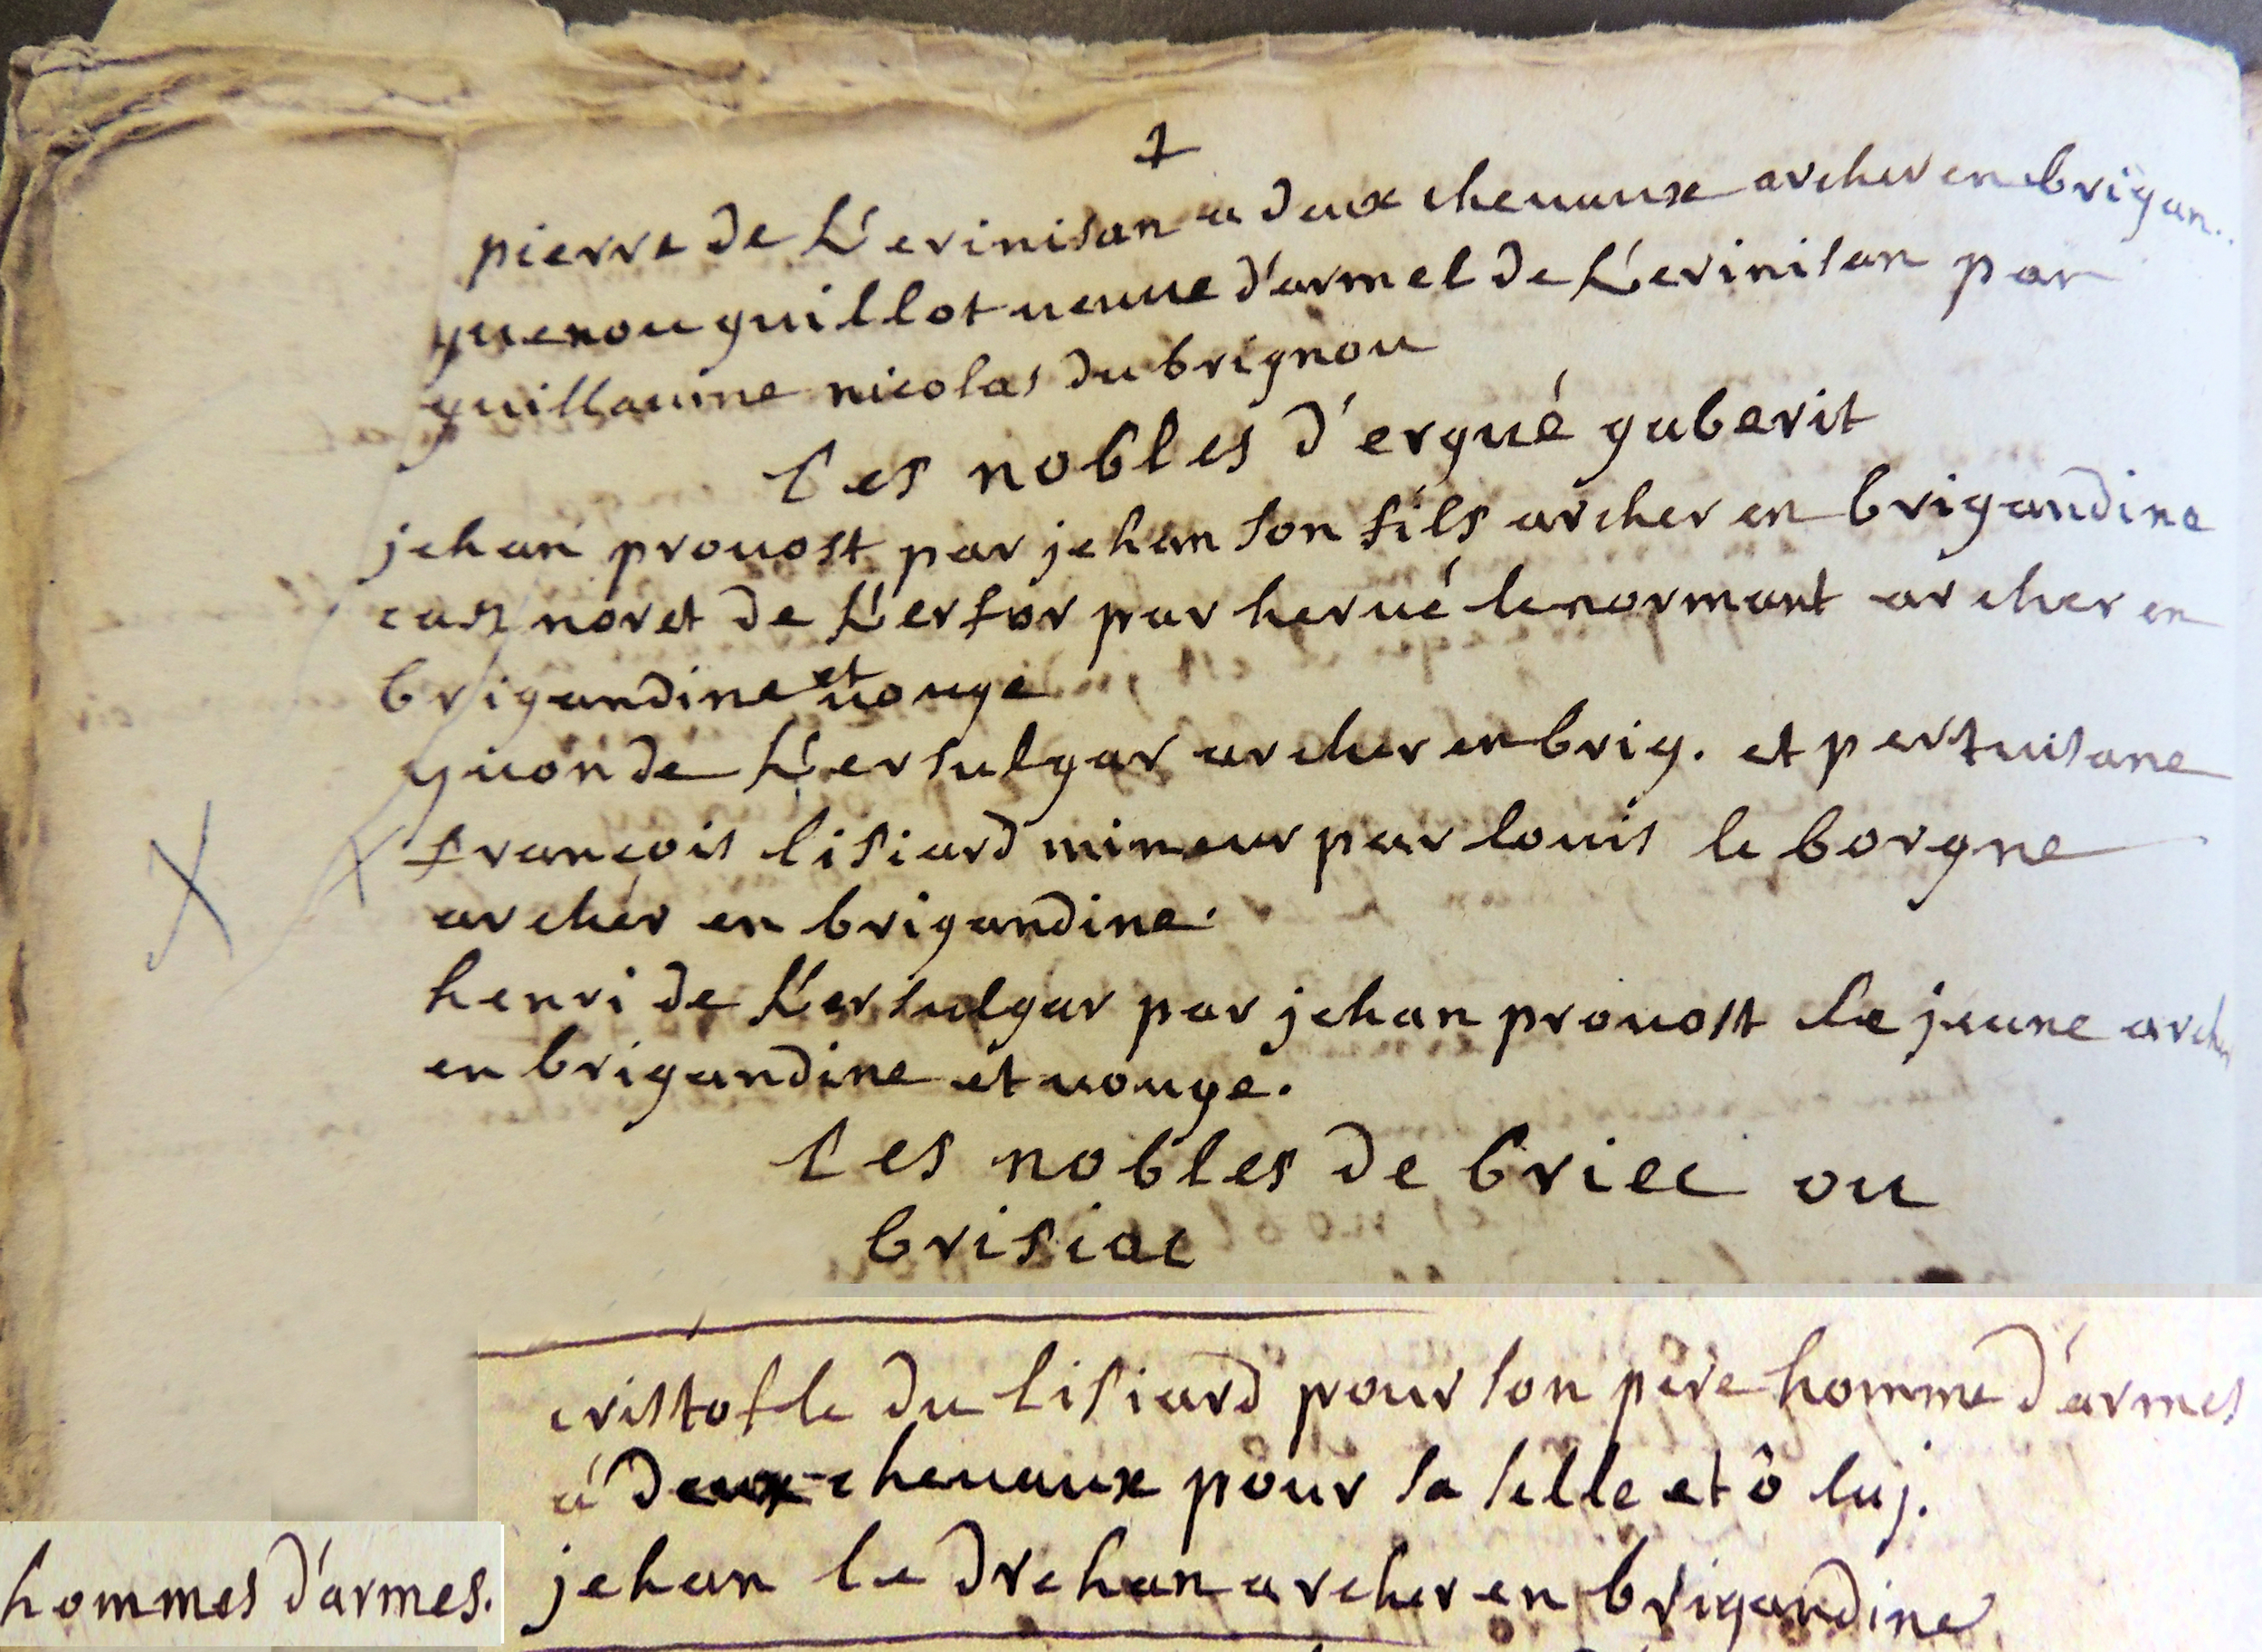 1
pierre de K'erinisan a deux cheuaux archer en brigan..
guenou guillot ueuue d'armel de K'erinisan par
guillaume nicolas du brignou
Les nobles d'ergué gaberit
jehan prouost par jehan son fils archer en brigandine
noret de K'erfor par herué le normant archer en
brigandine et uouge
yuon de K'ersulgar archer en brig. et pertuisane
françois lisiard mineur par louis le borgne
archer en brigandine.
henri de K'ersulgar par jehan prouost le jeune archer
en brigandine et uouge.
Les nobles de briec ou
brisiac
cristofle du lisiard pour son père homme d'armes
à deux cheuaux pour sa selle et ô luj.
jehan le drehan archer en brigandine
hommes d'armes.